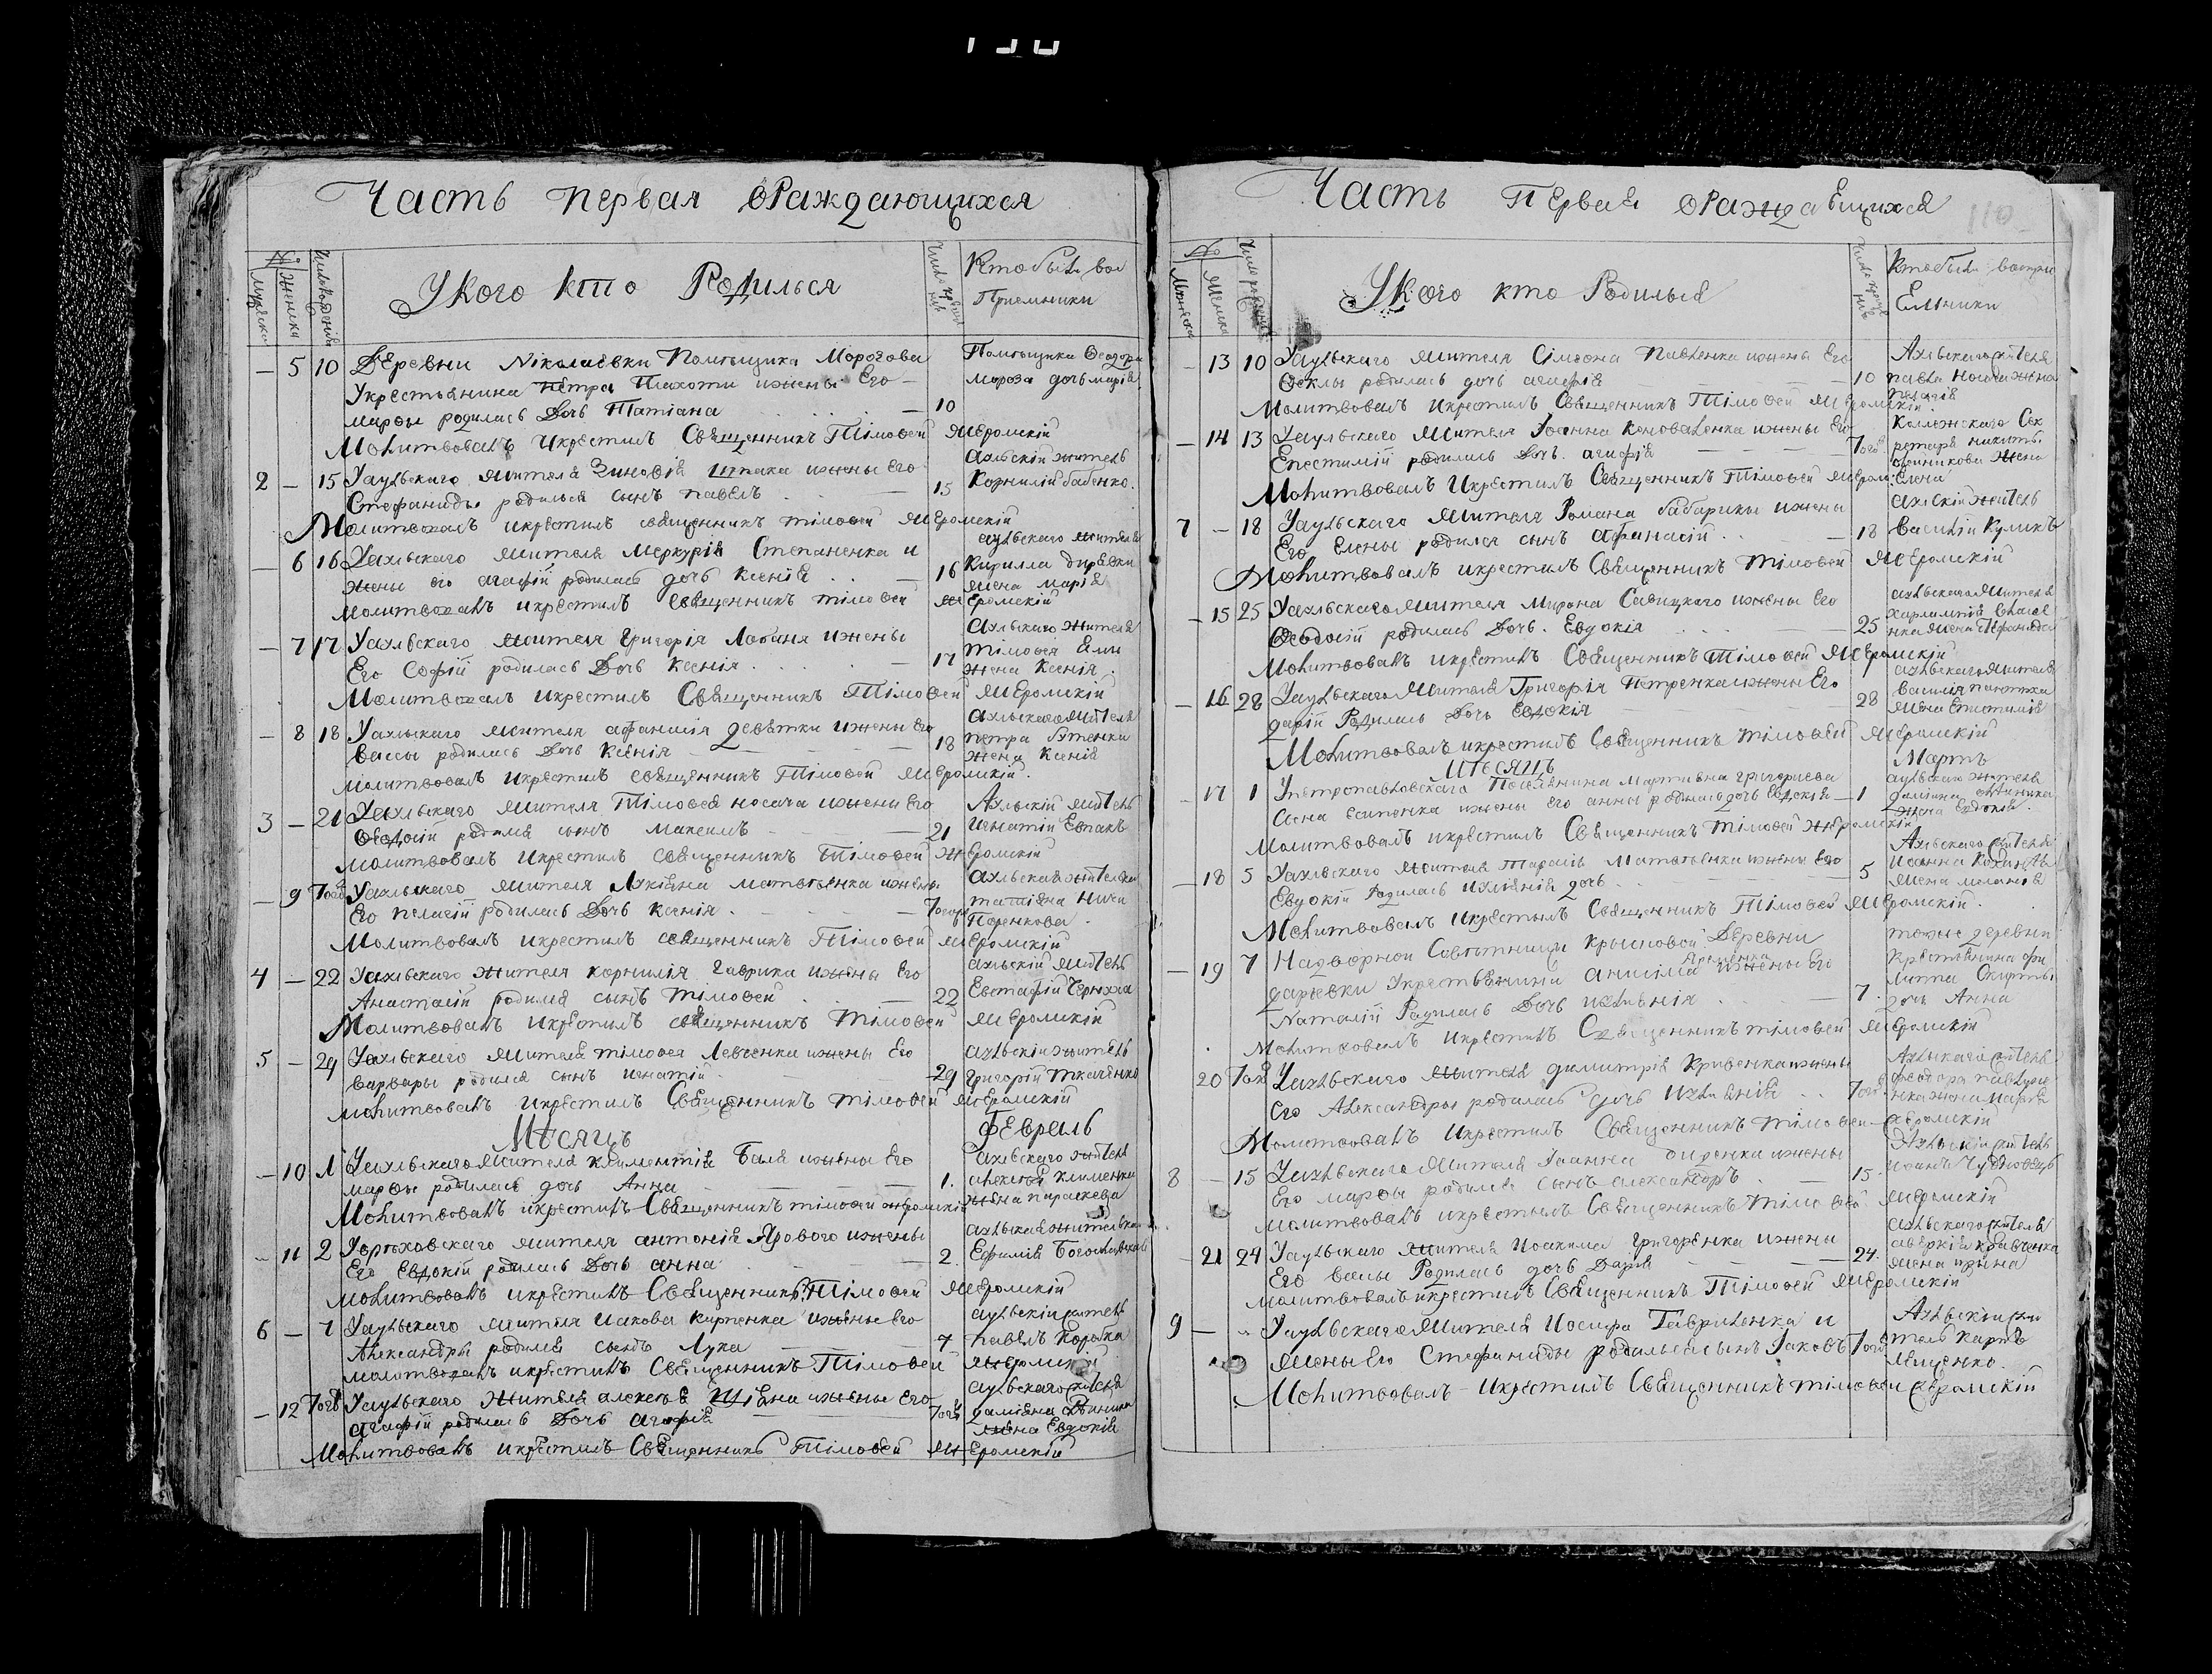 Часть первая ѳРаждающихся
№
мужеска
женска
Число рожденія
Укого кто Родился
Число крещенія
Кто были вос
Приемники
— 5 10 Деревни Nіколаевки Помѣщика Морозова
Укрестьянина Петра Плахоти ижены Его —
марѳы родилась Дочь Татіана 10
Помѣщика Ѳеодора
мороза дочь марія
Молитвовалъ Икрестилъ Священникъ Тімоѳей Жеромскій
2 — 15 Уахльскаго жителя Зиновія шпака ижены его
Стефаниды родилься сынъ павелъ 15
Ахльскій житель
Корнилій бабенко.
Молитвовалъ икрестилъ священникъ тімоѳей Жеромскій
— 6 16 Уахльскаго жителя Меркурія Степаненка и
жены его агафіи родилась дочь Ксенія 16
ахльскаго жителя
Кирилла
жена марія
молитвовалъ икрестилъ священникъ тімоѳей жеромскій
— 7 17 Уахльскаго жителя Григорія Лобаня ижены
Его Софіи родилась Дочь Ксенія 17
Ахльскаго жителя
тімоѳея
жена Ксенія
Молитвовалъ икрестилъ Священникъ Тімоѳей Жеромскій
— 8 18 Уахльскаго жителя афанасія девятки ижены его
вассы родилась Дочь Ксенія 18
Ахльскаго жителя
петра
жена Ксенія
молитвовалъ икрестилъ священникъ Тімоѳей жеромскій.
3 — 21 Уахльскаго жителя Тімоѳея носача ижены Его
Ѳеодосіи родился сынъ Максимъ 21
Ахльскій житель
Игнатій
молитвовалъ Икрестилъ священникъ Тімоѳей жеромскій
— 9 Тогож Уахльскаго жителя Лукіана ижены
Его пелагіи родилась Дочь Ксенія Тогож
ахльская жителка
татіана
Молитвовалъ икрестилъ священникъ Тімоѳей жеромскій
4 — 22 Уахльскаго жителя корнилія Гаврика ижены Его
Анастасіи родился сынъ тімоѳей 22
ахльскій житель
Евстафій
Молитвовалъ икрестилъ священникъ Тімоѳей жеромскій
5 — 29 Уахльскаго жителя тімоѳея Левченка ижены Его
варвары родился сынъ игнатій 29
ахльскій житель
Григорій ткаченко
молитвовалъ икрестилъ Священникъ тімоѳей жеромскій
Мѣсяцъ Февраль
— 10 1 Уахльскаго жителя климентія Бала ижены Его
марѳы родилась дочь Анна 1.
ахльскаго жителя
алексѣя клименка
жена параскева
Молитвовалъ икрестилъ Священникъ тімоѳей жеромскій
— 11 2 жителя антонія Ярового ижены
Его Евдокіи родилась Дочь анна 2.
ахльская жителька
Ефимія
молитвовалъ икрестилъ Священникъ Тімоѳей Жеромскій
6 — 7 Уахльскаго жителя Иакова Карпенка ижены его
Александры родился сынъ Лука 7
ахльскій житель
павелъ Коробка
молитвовалъ икрестилъ Священникъ Тімоѳей жеромскій
— 12 Тогож Уахльскаго жителя алексѣя ижены Его
агафіи родилась Дочь агафія Тогож
ахльскаго жителя
даміана
жена Евдокія
Молитвовалъ икрестилъ Священникъ Тімоѳей Жеромскій
Часть пЕрвая
110
№
Укого кто Родилься
Кто были воспри
Емники
— 13 10 Уахльскаго жителя Сімеона павленка ижены Его
Ѳеклы родилась дочь агафія 10
Ахльскаго жителя
павла жена
Молитвовалъ икрестилъ Священникъ Тімоѳей жеромскій.
— 14 13 Уахльскаго жителя Іоанна Коноваленка ижены Его
Епистиміи родилась Дочь. агафія Тогож
Колежскаго Сек
ретаря никиты
жена
Елена
Молитвовалъ Икрестилъ Священникъ Тімоѳей
7 — 18 Уахльскаго жителя Романа бабарики ижены
Его Елены родился сынъ аѳанасій 18
ахльскій житель
василій Куликъ
Молитвовалъ икрестилъ Священникъ Тімоѳей жеромскій
— 15 25 Уахльскаго жителя Мирона Савицкаго ижены Его
Ѳеодосіи родилась Дочь. Евдокія 25
ахльскаго жителя
Молитвовалъ икрестилъ Священникъ Тімоѳей Жеромскій
— 16 28 Уахльскаго жителя Григорія Петренка ижены Его
даріи Родилась Дочь Евдокія 28
ахльскаго жителя
василія
жена Епистимія
Молитвовалъ икрестилъ Священникъ тімоѳей жеромскій
Мѣсяцъ Мартъ
— 17 1 Упетропавловскаго Поселянина Мартына григориева
сына есипенка ижены его анны родилась дочь Евдокія 1
ахльскаго жителя
даміана
жена Евдокія
Молитвовалъ икрестилъ Священникъ Тімоѳей жеромскій
— 18 5 Уахльскаго жителя Тарасія ижены Его
Евдокіи Родилась иуліанія дочь 5
Ахльскаго жителя
Иоанна
жена меланія
Молитвовалъ Икрестилъ Священникъ Тімоѳей жеромскій.
— 19 7 Надворной Совѣтницы крысиовой Деревни
дарьевки Укрестьянина анисіма Яременка ижены Его
Nаталіи Родилась Дочь иуліанія 7.
тойже деревни
Крестьянина
дочь Анна
Молитвовалъ икрестилъ Священникъ тімоѳей жеромскій
20 Тогож Уахльскаго жителя димитрія Кривенка ижены
Его Александры родилась дочь иуліанія Тогож
Ахльскаго жителя
феодора
жена Марѳа
Молитвовалъ Икрестилъ Священникъ тімоѳей жеромскій
8 — 15 Уахльскаго жителя Іоанна ижены
Его марѳы родился сынъ александръ 15.
Ахльскій житель
иоанъ
молитвовалъ икрестилъ Священникъ тімоѳей жеромскій
— 21 24 Уахльскаго жителя Иоакима григоренка ижены
Его васы Родилась дочь Дарія 24.
ахльскаго жителя
аверкія кравченка
жена ирина
молитвовалъ икрестилъ Священникъ Тімоѳей жеромскій
9 — „ Уахльскаго жителя Иосифа Гавриленка и
жены Его Стефаниды родилься сынъ Іаковъ Тогож
Ахльскій жи
тель карпъ
мищенко.
Молитвовалъ Икрестилъ Священникъ тімоѳей жеромскій